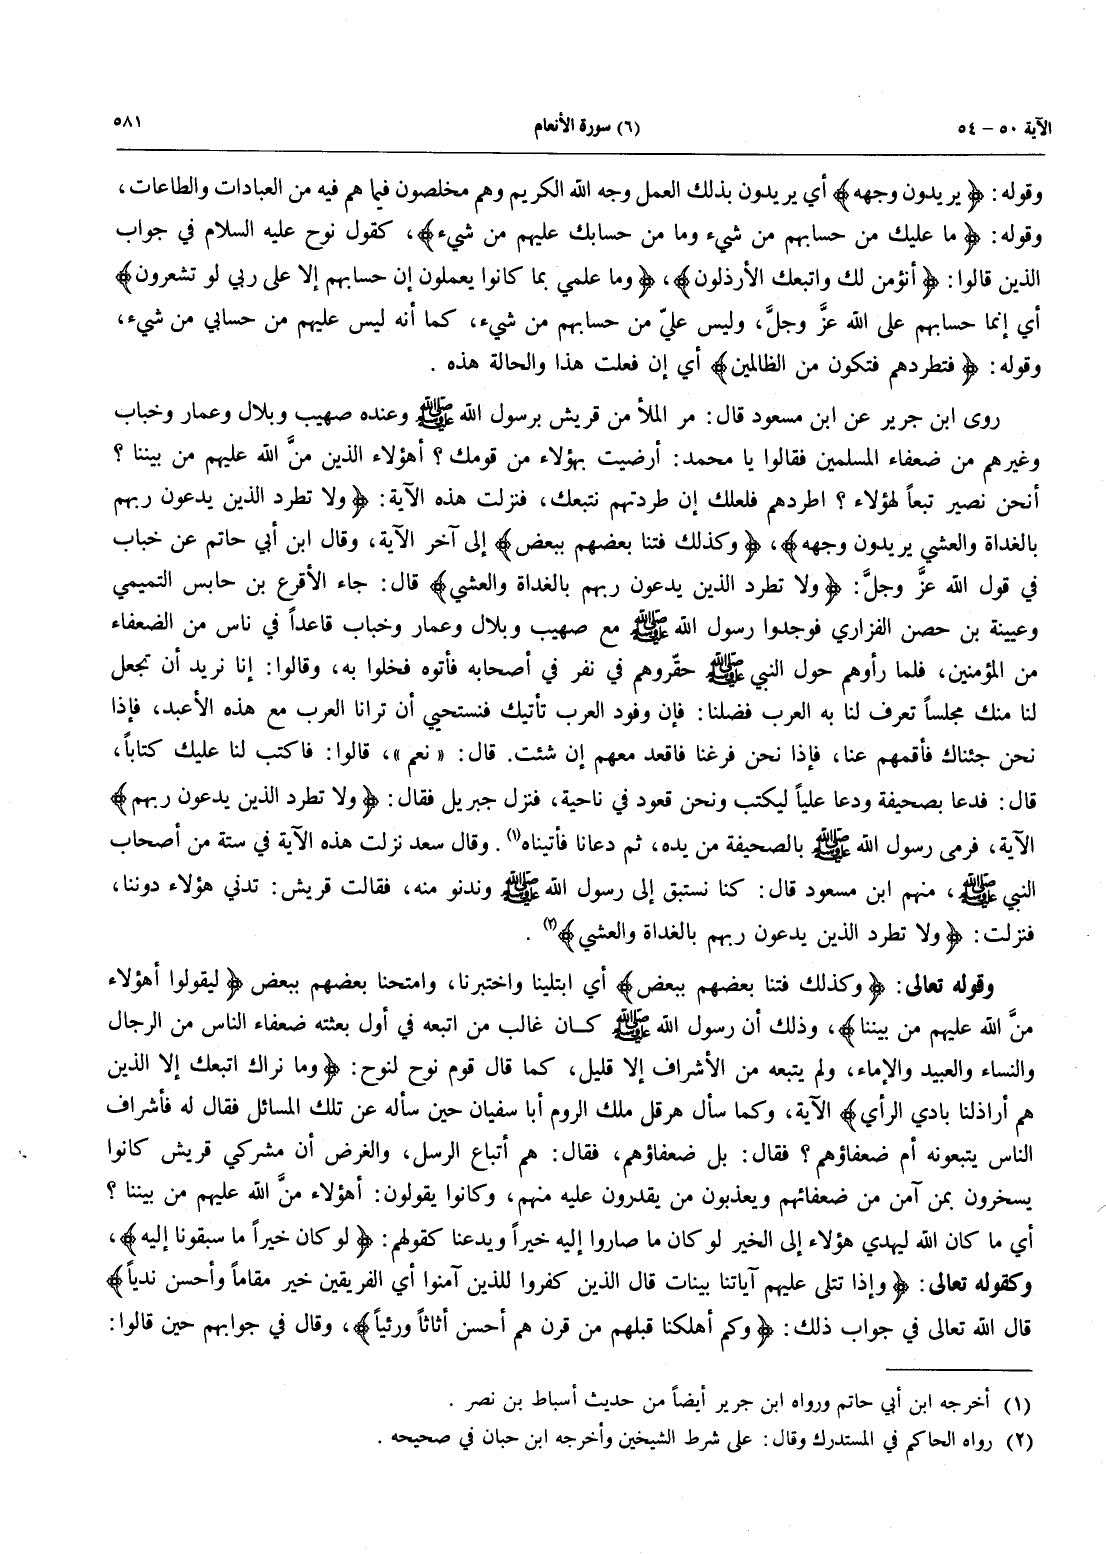 الآية ٥٠ – ٥٤ (٦) سورة الأنعام ٥٨١
وقوله: ﴿يريدون وجهه﴾ أي يريدون بذلك العمل وجه الله الكريم وهم مخلصون فيما هم فيه من العبادات والطاعات،
وقوله: ﴿ما عليك من حسابهم من شيء وما من حسابك عليهم من شيء﴾، كقول نوح عليه السلام في جواب
الذين قالوا: ﴿أنؤمن لك واتبعك الأرذلون﴾، ﴿وما علمي بما كانوا يعملون إن حسابهم إلا على ربي لو تشعرون﴾
أي إنما حسابهم على الله عزَّ وجلَّ، وليس عليّ من حسابهم من شيء، كما أنه ليس عليهم من حسابي من شيء،
وقوله: ﴿فتطردهم فتكون من الظالمين﴾ أي إن فعلت هذا والحالة هذه .
روى ابن جرير عن ابن مسعود قال: مر الملأ من قريش برسول الله ﷺ وعنده صهيب وبلال وعمار وخباب
وغيرهم من ضعفاء المسلمين فقالوا يا محمد: أرضيت بهؤلاء من قومك؟ أهؤلاء الذين منَّ الله عليهم من بيننا ؟
أنحن نصير تبعاً لهؤلاء ؟ اطردهم فلعلك إن طردتهم نتبعك، فنزلت هذه الآية: ﴿ولا تطرد الذين يدعون ربهم
بالغداة والعشي يريدون وجهه﴾، ﴿وكذلك فتنا بعضهم ببعض﴾ إلى آخر الآية، وقال ابن أبي حاتم عن خباب
في قول الله عزَّ وجلَّ: ﴿ولا تطرد الذين يدعون ربهم بالغداة والعشي﴾ قال: جاء الأقرع بن حابس التميمي
وعيينة بن حصن الفزاري فوجدوا رسول الله ﷺ مع صهيب وبلال وعمار وخباب قاعداً في ناس من الضعفاء
من المؤمنين، فلما رأوهم حول النبي ﷺ حقّروهم في نفر في أصحابه فأتوه فخلوا به، وقالوا: إنا نريد أن تجعل
لنا منك مجلساً تعرف لنا به العرب فضلنا: فإن وفود العرب تأتيك فنستحيي أن ترانا العرب مع هذه الأعبد، فإذا
نحن جئناك فأقمهم عنا، فإذا نحن فرغنا فاقعد معهم إن شئت. قال: « نعم »، قالوا: فاكتب لنا عليك كتاباً،
قال: فدعا بصحيفة ودعا علياً ليكتب ونحن قعود في ناحية، فنزل جبريل فقال: ﴿ولا تطرد الذين يدعون ربهم﴾
الآية، فرمى رسول الله ﷺ بالصحيفة من يده، ثم دعانا فأتيناه(١). وقال سعد نزلت هذه الآية في ستة من أصحاب
النبي ﷺ، منهم ابن مسعود قال: كنا نستبق إلى رسول الله ﷺ وندنو منه، فقالت قريش: تدني هؤلاء دوننا،
فنزلت: ﴿ولا تطرد الذين يدعون ربهم بالغداة والعشي﴾(٢) .
وقوله تعالى: ﴿وكذلك فتنا بعضهم ببعض﴾ أي ابتلينا واختبرنا، وامتحنا بعضهم ببعض ﴿ليقولوا أهؤلاء
منَّ الله عليهم من بيننا﴾، وذلك أن رسول الله ﷺ كـان غالب من اتبعه في أول بعثته ضعفاء الناس من الرجال
والنساء والعبيد والإماء، ولم يتبعه من الأشراف إلا قليل، كما قال قوم نوح لنوح: ﴿وما نراك اتبعك إلا الذين
هم أراذلنا بادي الرأي﴾ الآية، وكما سأل هرقل ملك الروم أبا سفيان حين سأله عن تلك المسائل فقال له فأشراف
الناس يتبعونه أم ضعفاؤهم؟ فقال: بل ضعفاؤهم، فقال: هم أتباع الرسل، والغرض أن مشركي قريش كانوا
يسخرون بمن آمن من ضعفائهم ويعذبون من يقدرون عليه منهم، وكانوا يقولون: أهؤلاء منَّ الله عليهم من بيننا ؟
أي ما كان الله ليهدي هؤلاء إلى الخير لو كان ما صاروا إليه خيراً ويدعنا كقولهم: ﴿لو كان خيراً ما سبقونا إليه﴾،
وكقوله تعالى: ﴿وإذا تتلى عليهم آياتنا بينات قال الذين كفروا للذين آمنوا أي الفريقين خير مقاماً وأحسن ندياً﴾
قال الله تعالى في جواب ذلك: ﴿وكم أهلكنا قبلهم من قرن هم أحسن أثاثاً ورئياً﴾، وقال في جوابهم حين قالوا:
(١) أخرجه ابن أبي حاتم ورواه ابن جرير أيضاً من حديث أسباط بن نصر .
(٢) رواه الحاكم في المستدرك وقال: على شرط الشيخين وأخرجه ابن حبان في صحيحه .